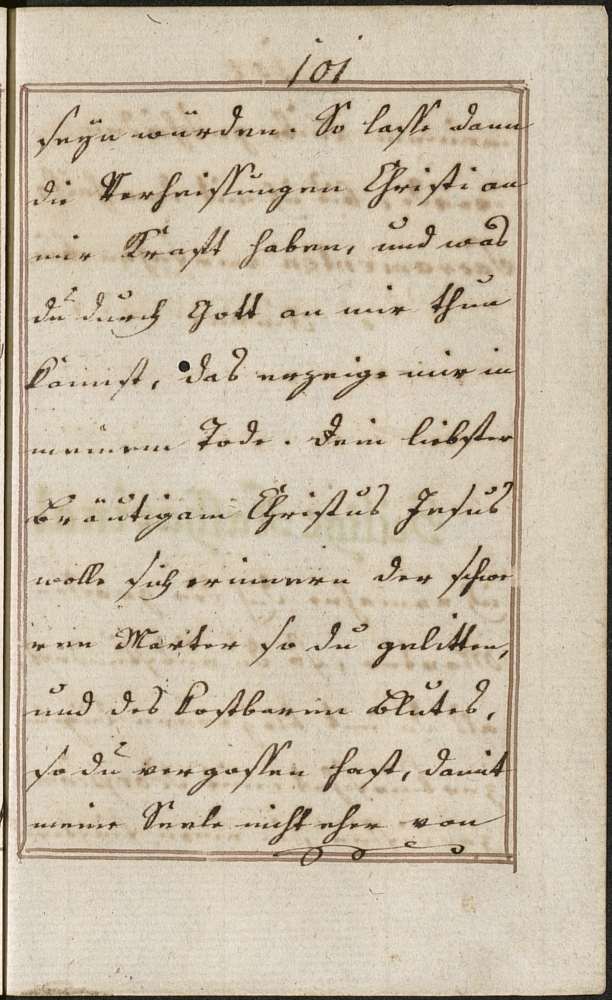 101
seyn würden. So lasse dann
die Verheissungen Christi an
mir Kraft haben, und was
du durch Gott an mir thun
kannst, das erzeige mir in
meinem Tode. Dein liebster
Bräutigam Christus Jesus
wolle sich erinnern der schwe
ren Marter so du gelitten,
und des kostbaren Blutes,
so du vergossen hast, damit
meine Seele nicht eher von